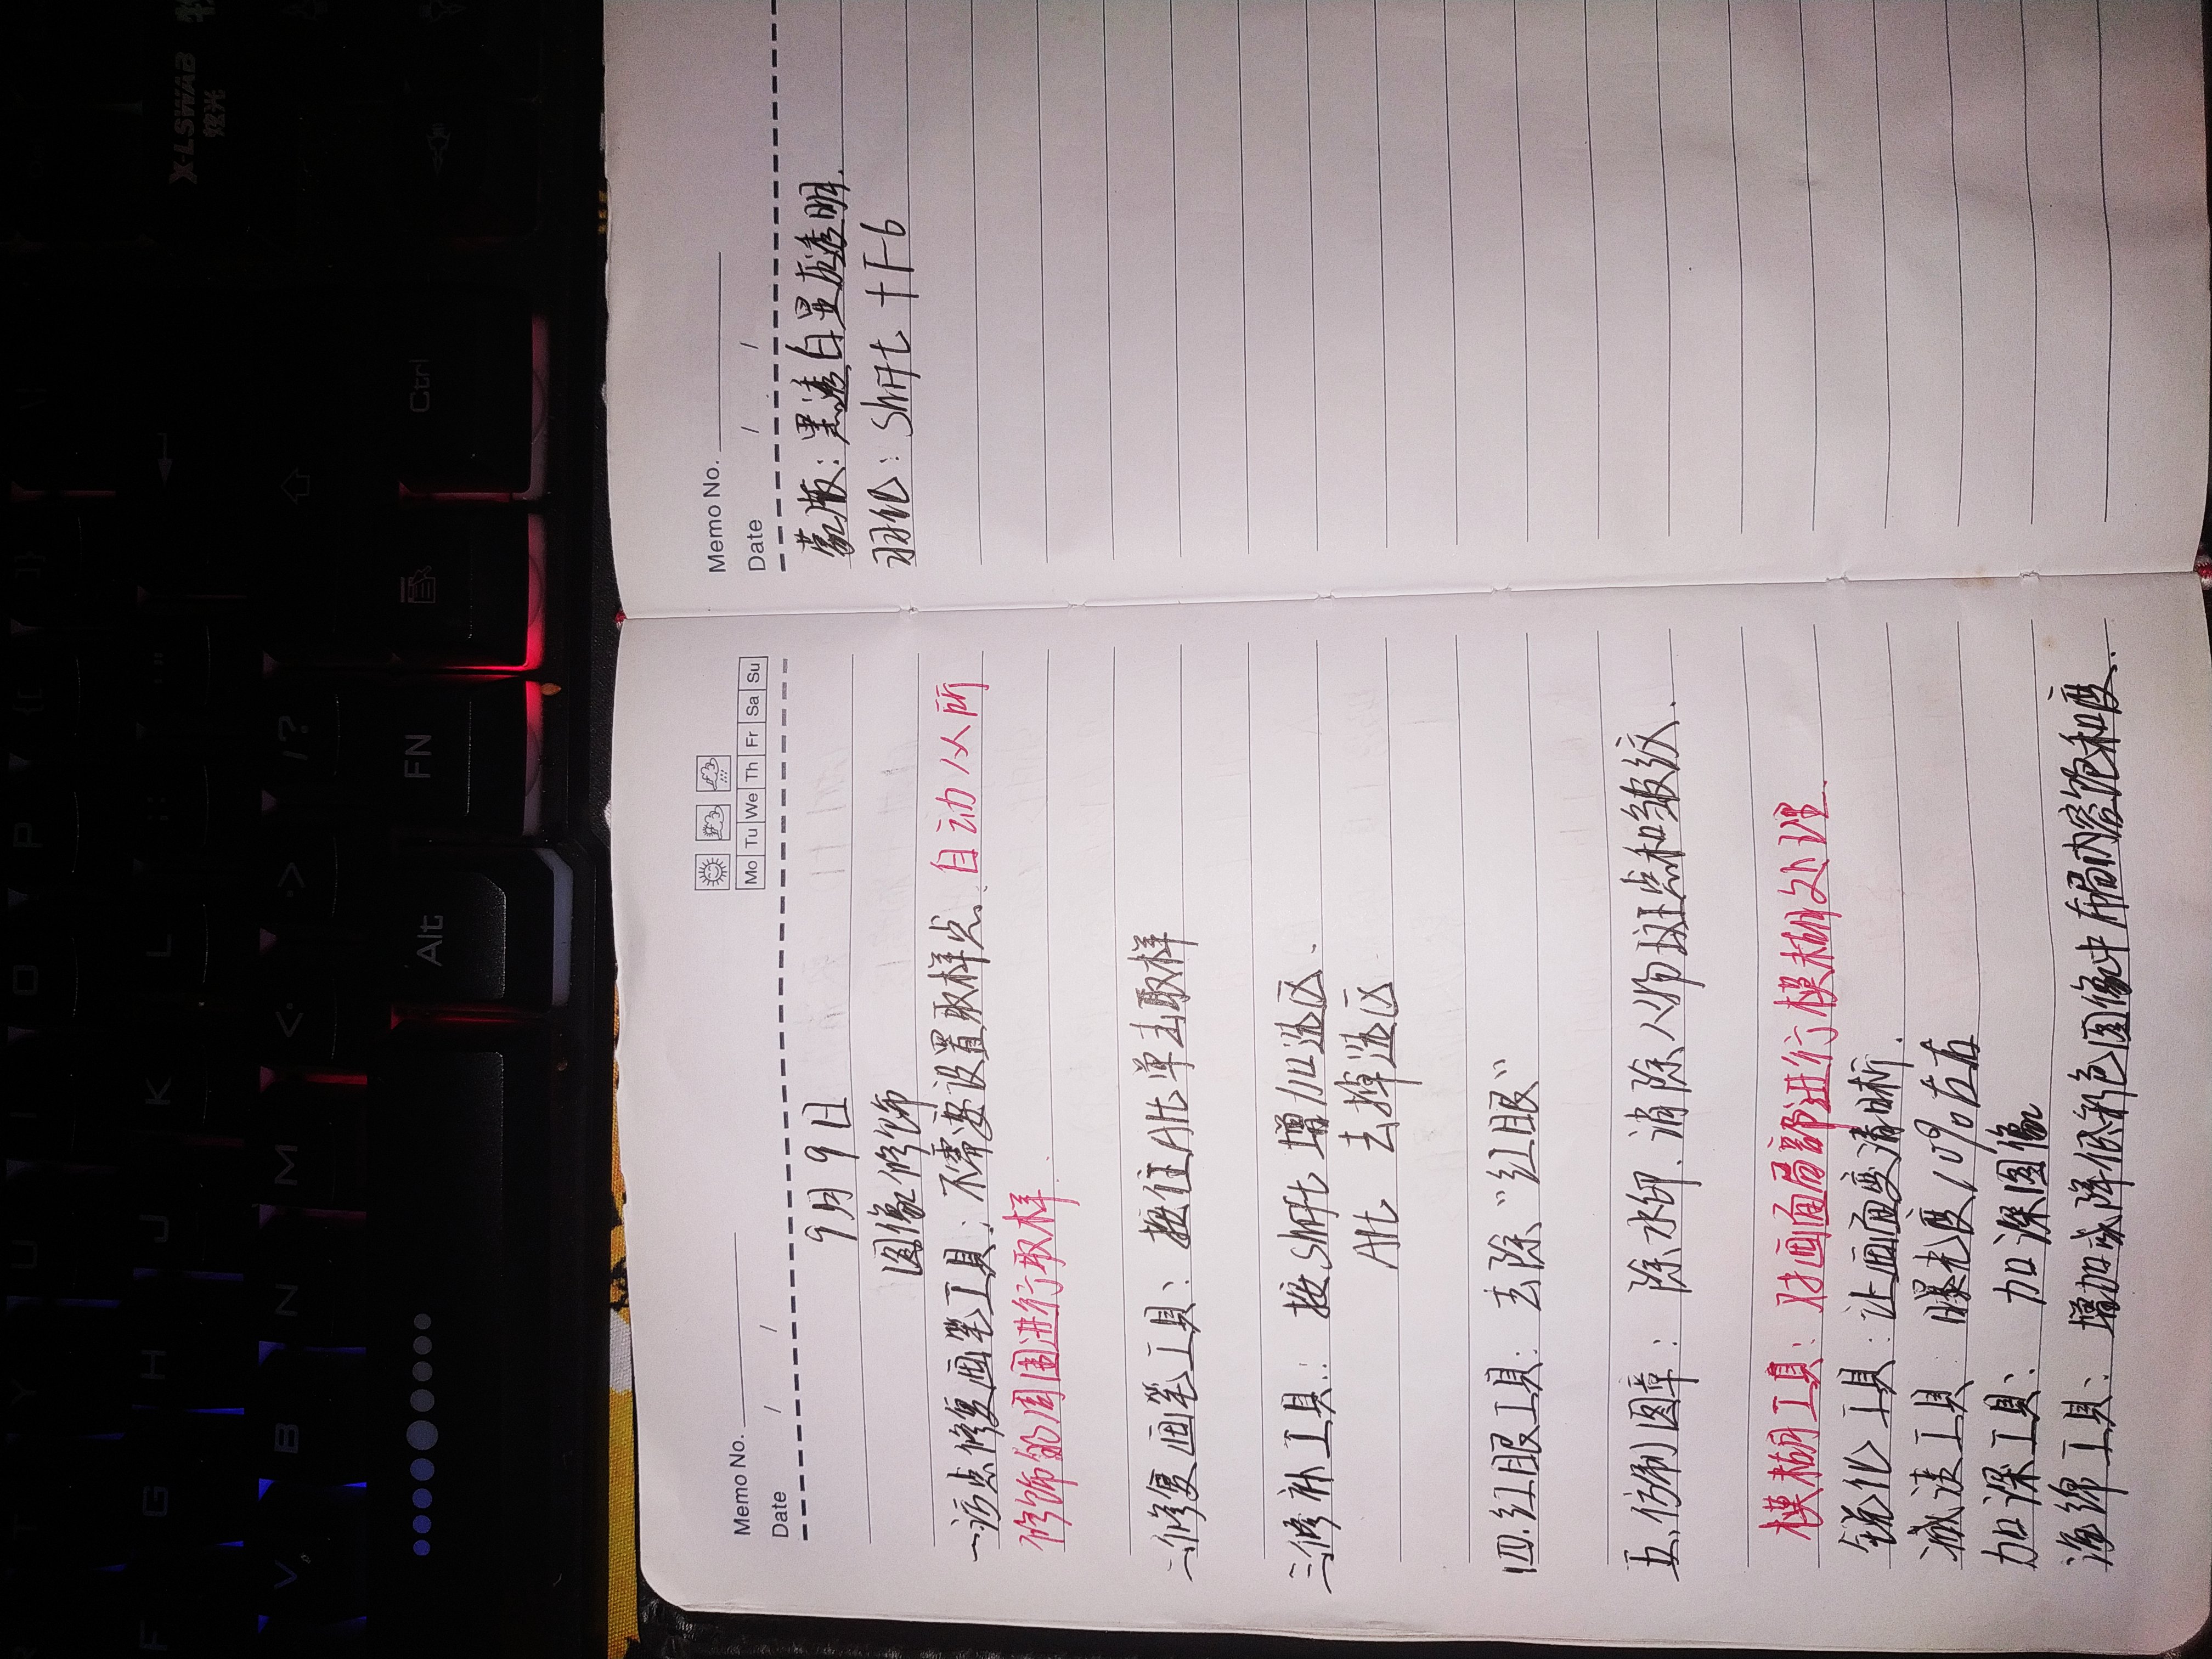 R T Y U I O P {[ ]}
F G H J K L :; '" 
X-LSWAB
炫光
V B N M <, .> /?
Alt FN Ctrl
Memo No.
Mo Tu We Th Fr Sa Su
Date / /
9月9日
图像修饰
一.污点修复画笔工具:不需要设置取样点.自动从所
修饰的周围进行取样.
二.修复画笔工具:按住Alt单击取样
三.修补工具:按shift增加选区.
Alt 去掉选区
四.红眼工具:去除"红眼"
五.仿制图章:除水印.消除人物斑点和皱纹.
模糊工具:对画面局部进行模糊处理.
锐化工具:让画面变清晰.
减淡工具 曝光度10%左右
加深工具:加深图像
海绵工具:增加或降低彩色图像中布局内容饱和度.
Memo No.
Date / /
蒙版:黑透白显灰透明.
羽化:shift+F6